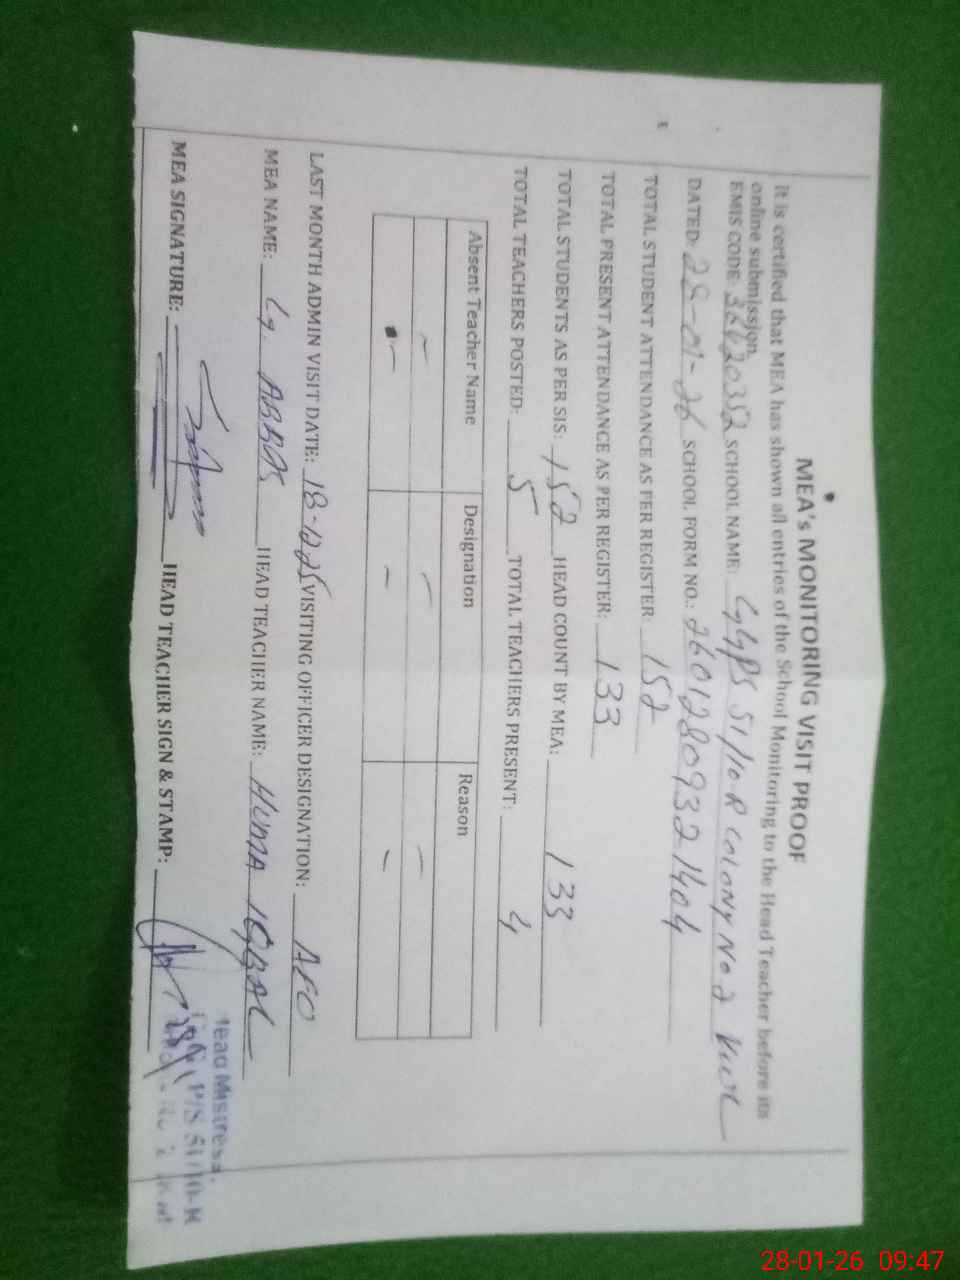 MEA's MONITORING VISIT PROOF
It is certified that MEA has shown all entries of the School Monitoring to the Head Teacher before its
online submission.
EMIS CODE: 36620352 SCHOOL NAME: GGPS 51/10R COLONY No 2
DATED: 28-01-26 SCHOOL FORM NO.: 26012809321404
TOTAL STUDENT ATTENDANCE AS PER REGISTER: 152
TOTAL PRESENT ATTENDANCE AS PER REGISTER: 133
TOTAL STUDENTS AS PER SIS: 152 HEAD COUNT BY MEA: 133
TOTAL TEACHERS POSTED: 5 TOTAL TEACHERS PRESENT: 4
Absent Teacher Name Designation Reason
– – –
– – –
LAST MONTH ADMIN VISIT DATE: 18-12-25 VISITING OFFICER DESIGNATION: AEO
MEA NAME: G. ABBAS HEAD TEACHER NAME: HUMA IQBAL
MEA SIGNATURE: HEAD TEACHER SIGN & STAMP:
Head Mistress
P/S 51/10-R
28-01-26 09:47